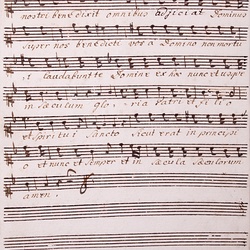 nostri benedixit omnibus adjiciat Dominus
super vos benedicti vos a Domino non mortui
te laudabunt te Domine ex hoc nunc et usque
in sæculum glo ria Patri et fi lio
et spiritui Sancto sicut erat in principi
o et nunc et semper et in sæcula sæculorum
amen.